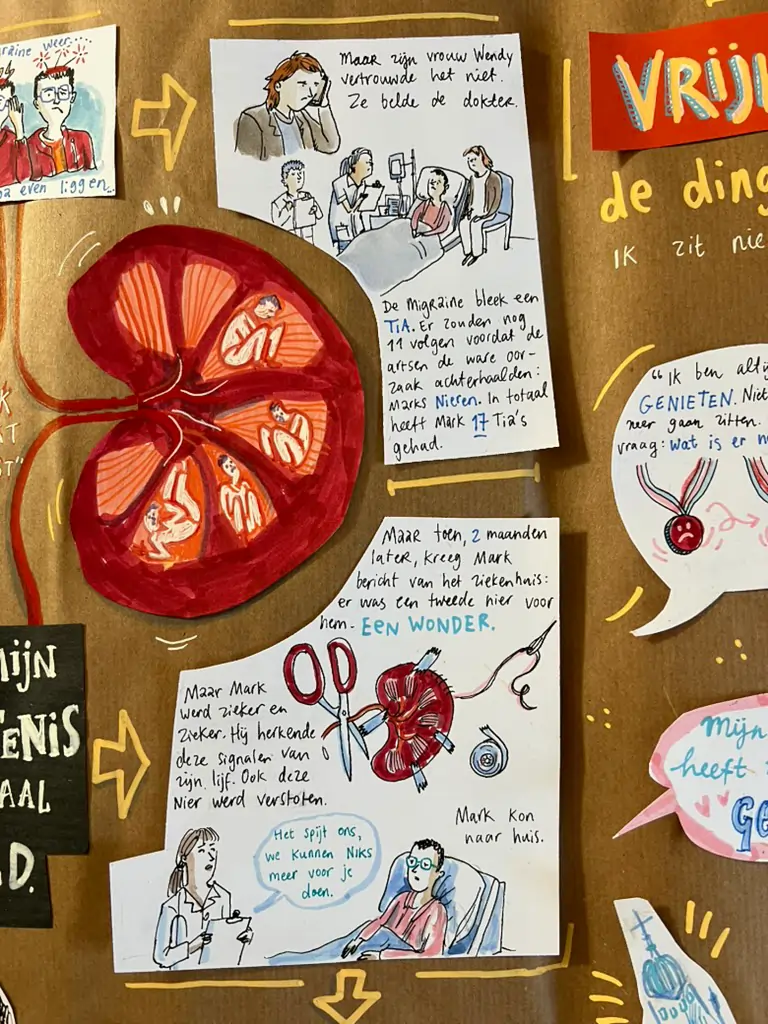 weer....
even liggen...
Maar zijn vrouw Wendy
vertrouwde het niet.
Ze belde de dokter.
De Migraine bleek een
TiA. Er zouden nog
11 volgen voordat de
artsen de ware oor-
zaak achterhaalden:
Marks Nieren. In totaal
heeft Mark 17 Tia's
gehad.
Maar toen, 2 maanden
later, kreeg Mark
bericht van het ziekenhuis:
er was een tweede nier voor
hem - EEN WONDER.
Maar Mark
werd zieker en
zieker. Hij herkende
deze signalen van
zijn lijf. Ook deze
Nier werd verstoten.
Mark kon
naar huis.
Het spijt ons,
we kunnen Niks
meer voor je
doen.
MIJN
AAL
D.
de
IK zit
"IK ben
GENIETEN.
meer gaan zitten.
vraag: Wat is er
Mijn
heeft